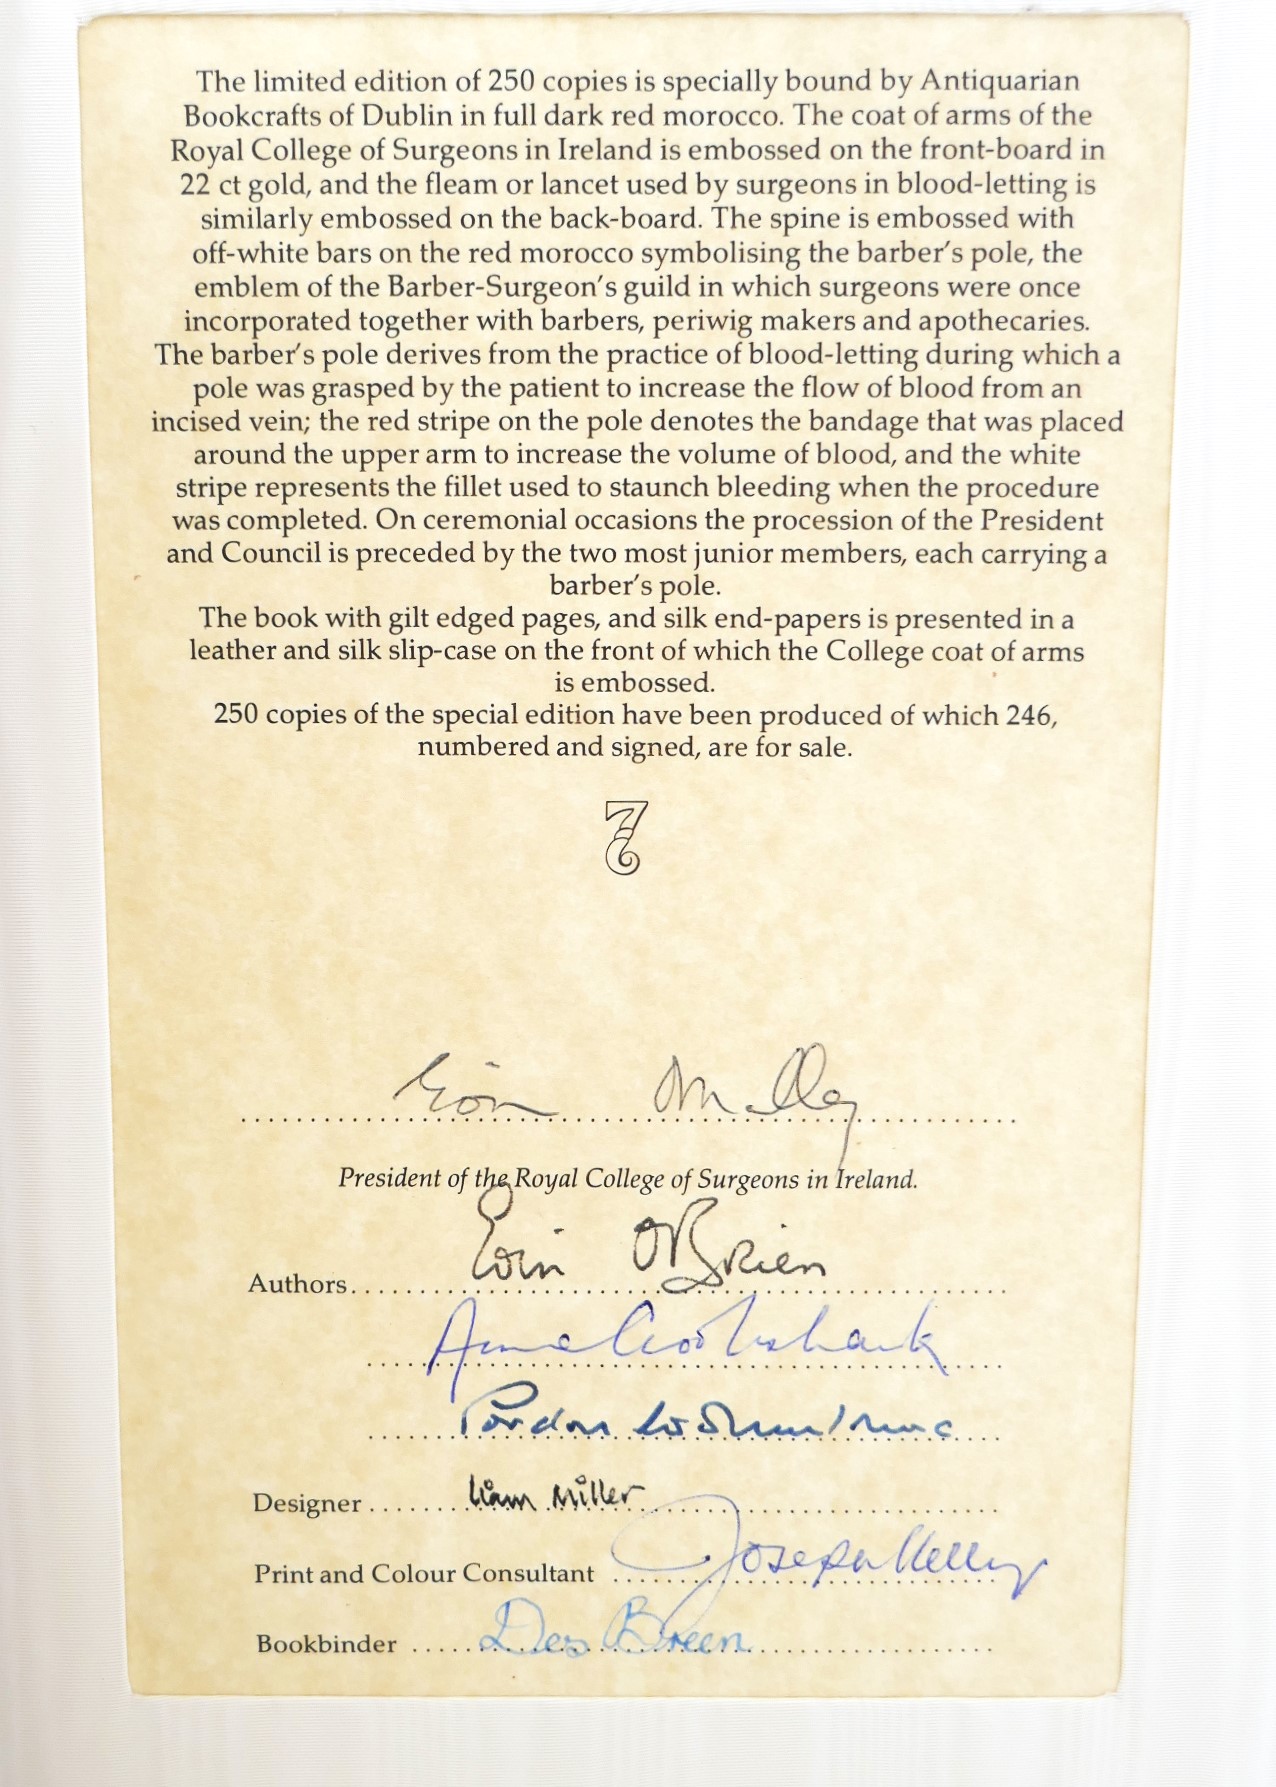 The limited edition of 250 copies is specially bound by Antiquarian
Bookcrafts of Dublin in full dark red morocco. The coat of arms of the
Royal College of Surgeons in Ireland is embossed on the front-board in
22 ct gold, and the fleam or lancet used by surgeons in blood-letting is
similarly embossed on the back-board. The spine is embossed with
off-white bars on the red morocco symbolising the barber's pole, the
emblem of the Barber-Surgeon's guild in which surgeons were once
incorporated together with barbers, periwig makers and apothecaries.
The barber's pole derives from the practice of blood-letting during which a
pole was grasped by the patient to increase the flow of blood from an
incised vein; the red stripe on the pole denotes the bandage that was placed
around the upper arm to increase the volume of blood, and the white
stripe represents the fillet used to staunch bleeding when the procedure
was completed. On ceremonial occasions the procession of the President
and Council is preceded by the two most junior members, each carrying a
barber's pole.
The book with gilt edged pages, and silk end-papers is presented in a
leather and silk slip-case on the front of which the College coat of arms
is embossed.
250 copies of the special edition have been produced of which 246,
numbered and signed, are for sale.
7
6
Eoin O'Malley
President of the Royal College of Surgeons in Ireland.
Authors Eoin O'Brien
Anne Crookshank
Designer Liam Miller
Print and Colour Consultant Joseph Kelly
Bookbinder Des Breen